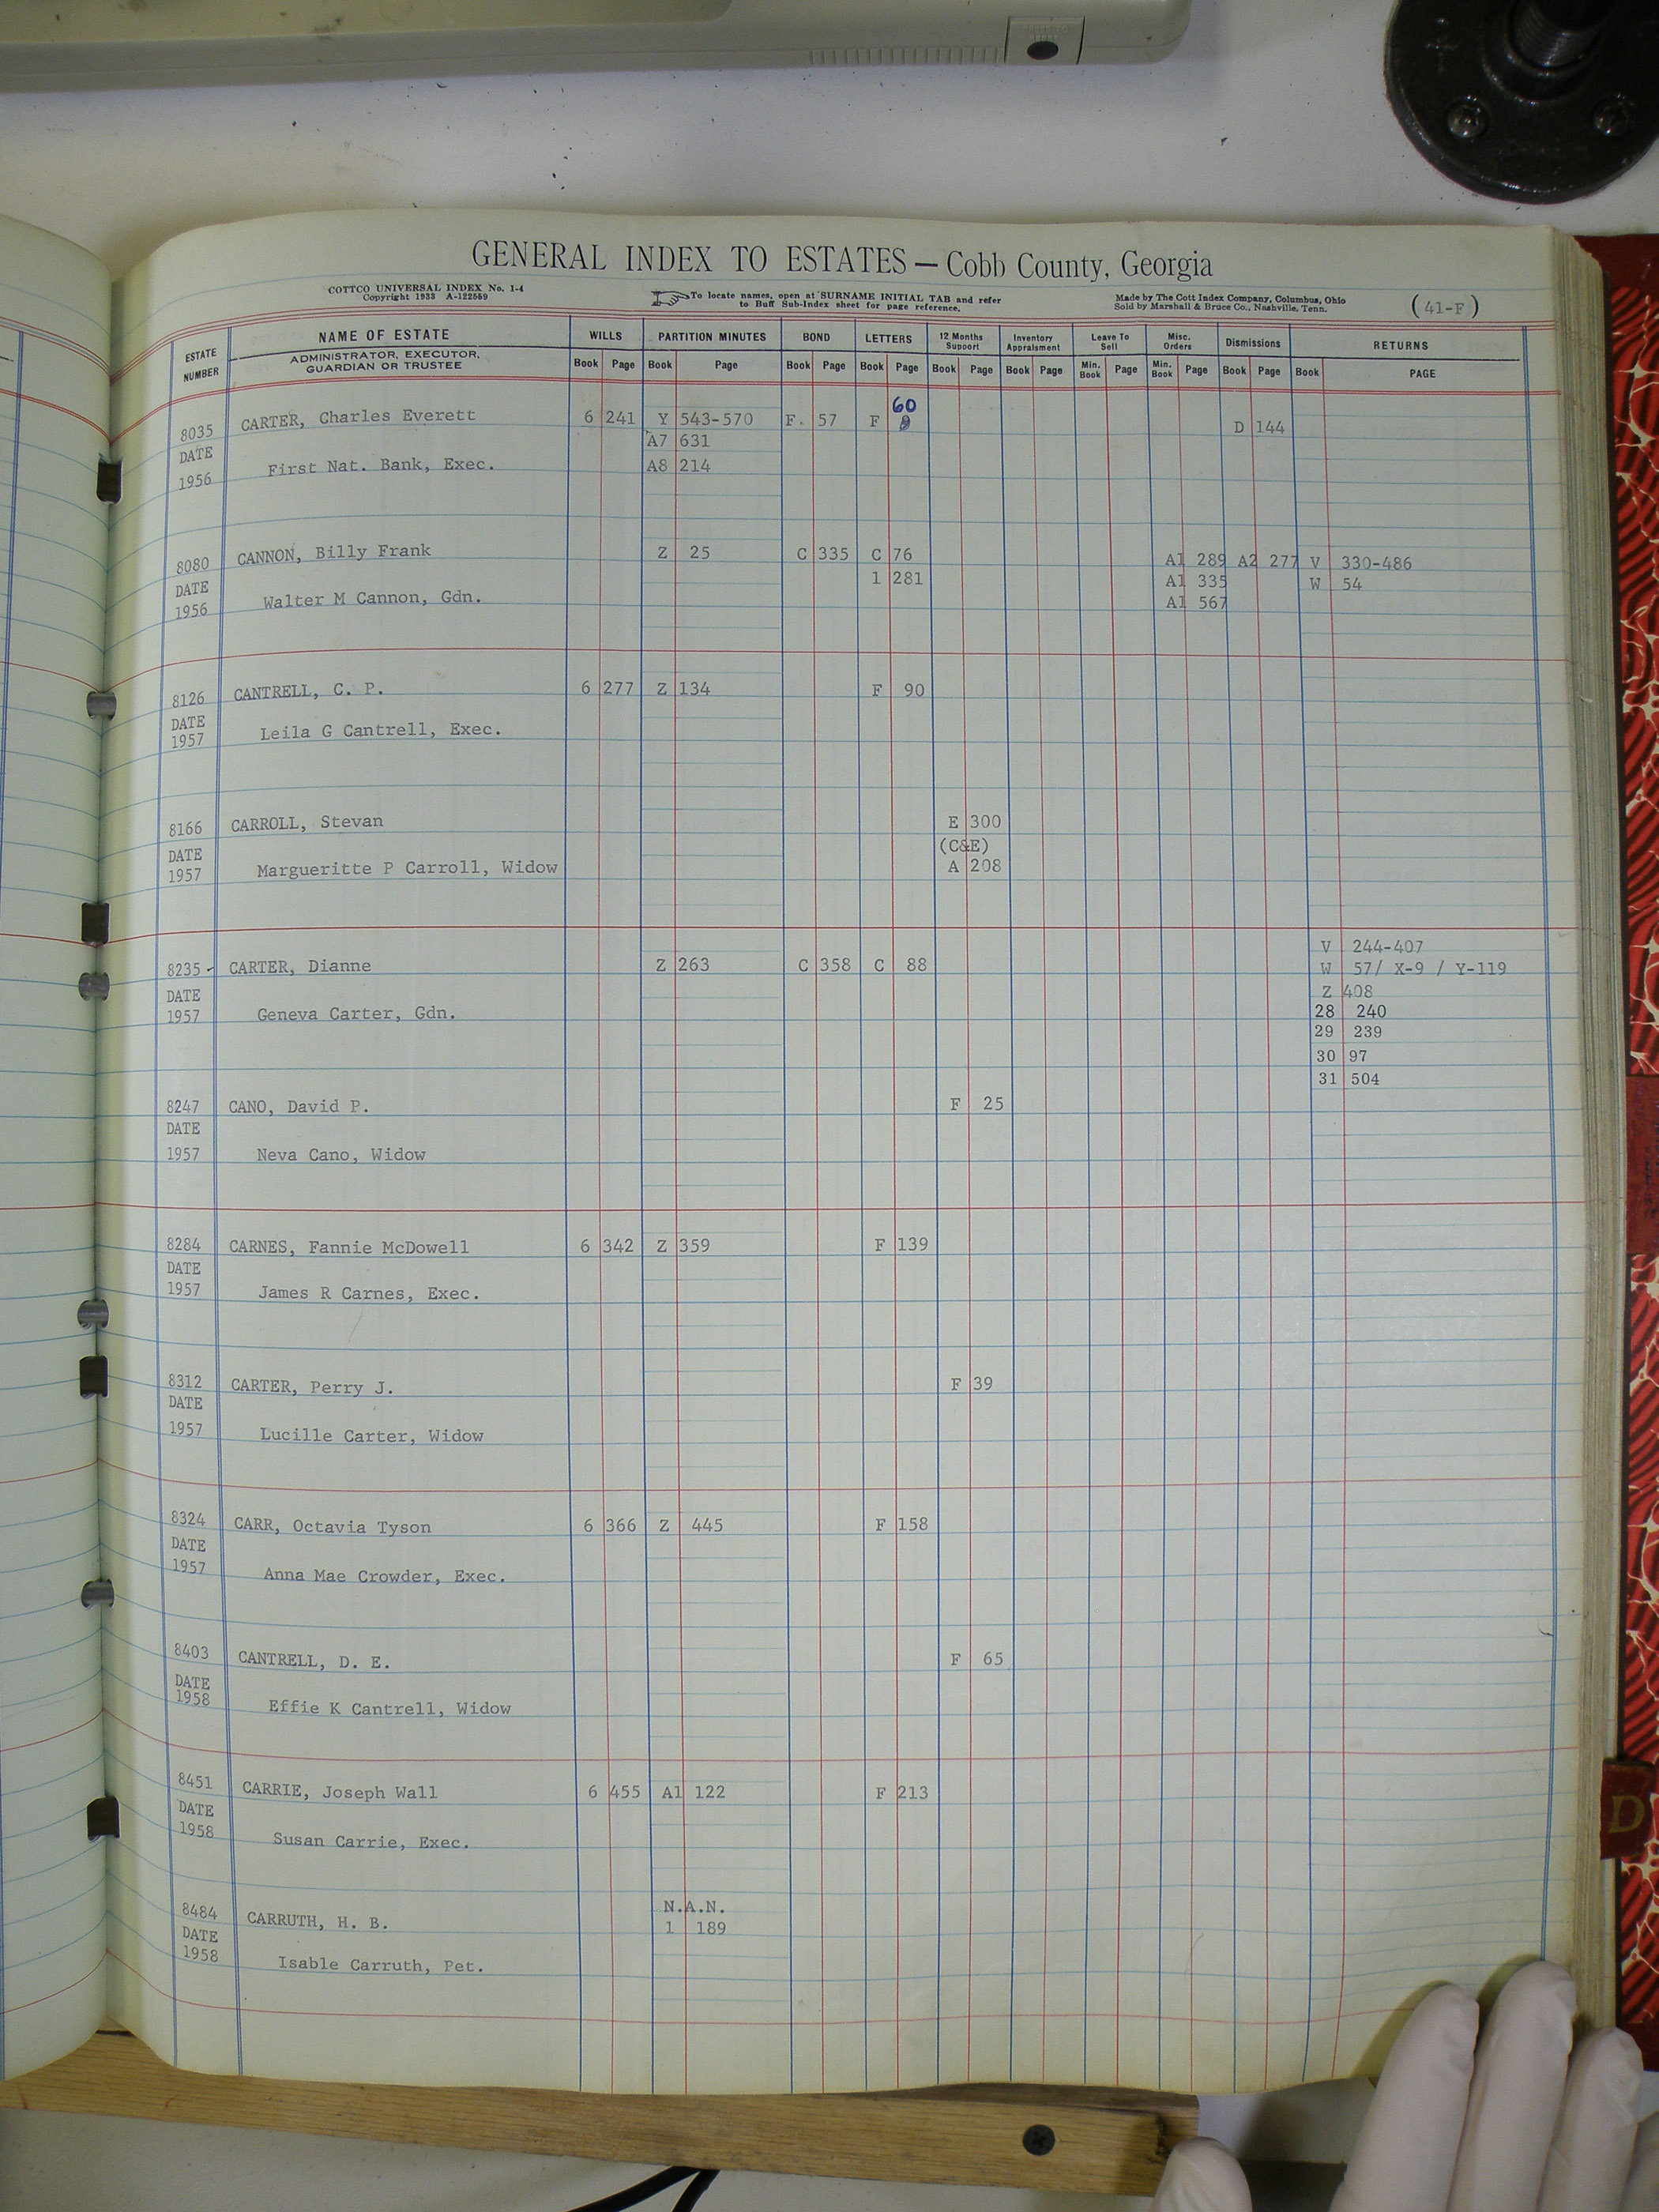 GENERAL INDEX TO ESTATES — Cobb County, Georgia
COTTCO UNIVERSAL INDEX No. 1-4
Copyright 1933 A-122559
To locate names, open at SURNAME INITIAL TAB and refer
to Buff Sub-Index sheet for page reference.
Made by The Cott Index Company, Columbus, Ohio
Sold by Marshall & Bruce Co., Nashville, Tenn.
(41-F)
ESTATE NUMBER NAME OF ESTATE WILLS PARTITION MINUTES BOND LETTERS 12 Months Support Inventory Appraisment Leave To Sell Misc. Orders Dismissions RETURNS
ADMINISTRATOR, EXECUTOR, GUARDIAN OR TRUSTEE Book Page Book Page Book Page Book Page Book Page Book Page Min. Book Page Min. Book Page Book Page Book PAGE
60
8035 CARTER, Charles Everett 6 241 Y 543-570 F. 57 F D 144
DATE A7 631
1956 First Nat. Bank, Exec. A8 214
8080 CANNON, Billy Frank Z 25 C 335 C 76 A1 289 A2 277 V 330-486
DATE 1 281 A1 335 W 54
1956 Walter M Cannon, Gdn. A1 567
8126 CANTRELL, C. P. 6 277 Z 134 F 90
DATE
1957 Leila G Cantrell, Exec.
8166 CARROLL, Stevan E 300
DATE (C&E)
1957 Margueritte P Carroll, Widow A 208
V 244-407
8235 CARTER, Dianne Z 263 C 358 C 88 W 57/ X-9 / Y-119
DATE Z 408
1957 Geneva Carter, Gdn. 28 240
29 239
30 97
31 504
8247 CANO, David P. F 25
DATE
1957 Neva Cano, Widow
8284 CARNES, Fannie McDowell 6 342 Z 359 F 139
DATE
1957 James R Carnes, Exec.
8312 CARTER, Perry J. F 39
DATE
1957 Lucille Carter, Widow
8324 CARR, Octavia Tyson 6 366 Z 445 F 158
DATE
1957 Anna Mae Crowder, Exec.
8403 CANTRELL, D. E. F 65
DATE
1958 Effie K Cantrell, Widow
8451 CARRIE, Joseph Wall 6 455 A1 122 F 213
DATE
1958 Susan Carrie, Exec.
N.A.N.
8484 CARRUTH, H. B. 1 189
DATE
1958 Isable Carruth, Pet.
D